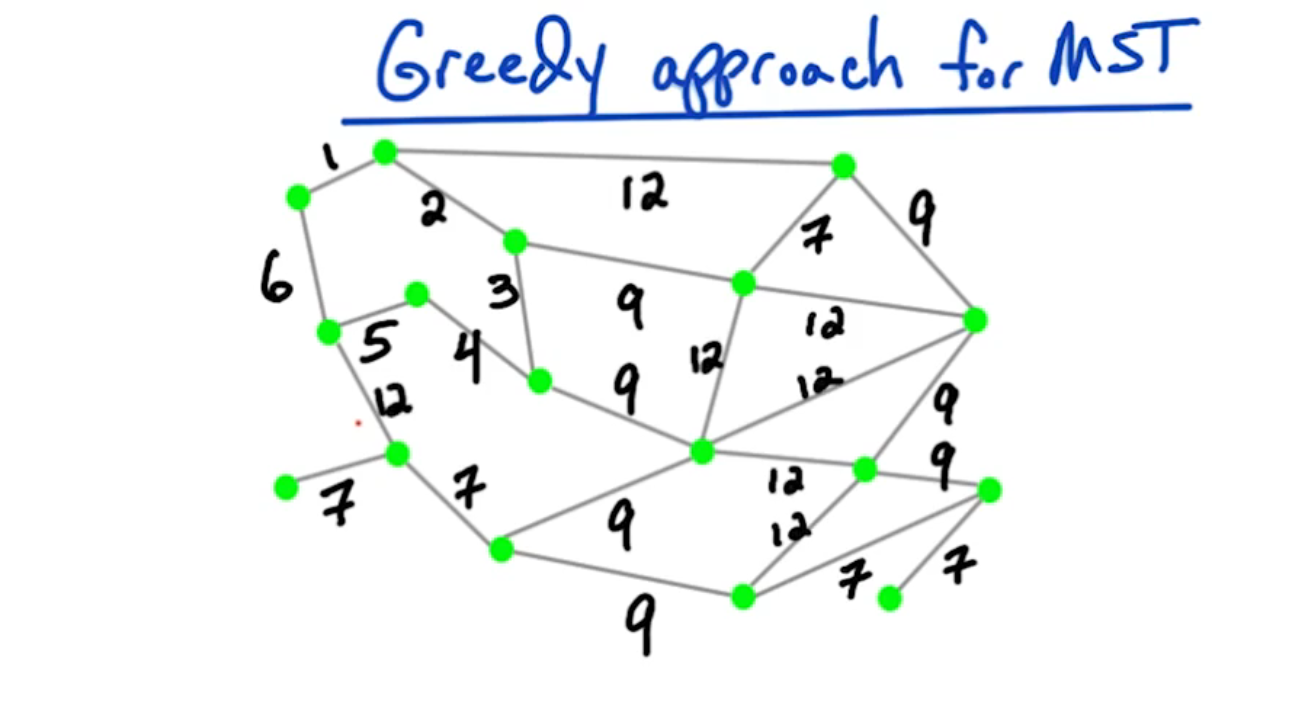 Greedy approach for MST
1
12
2
7
9
6
3
9
12
5
4
12
12
9
12
9
9
7
7
9
12
12
7
7
9